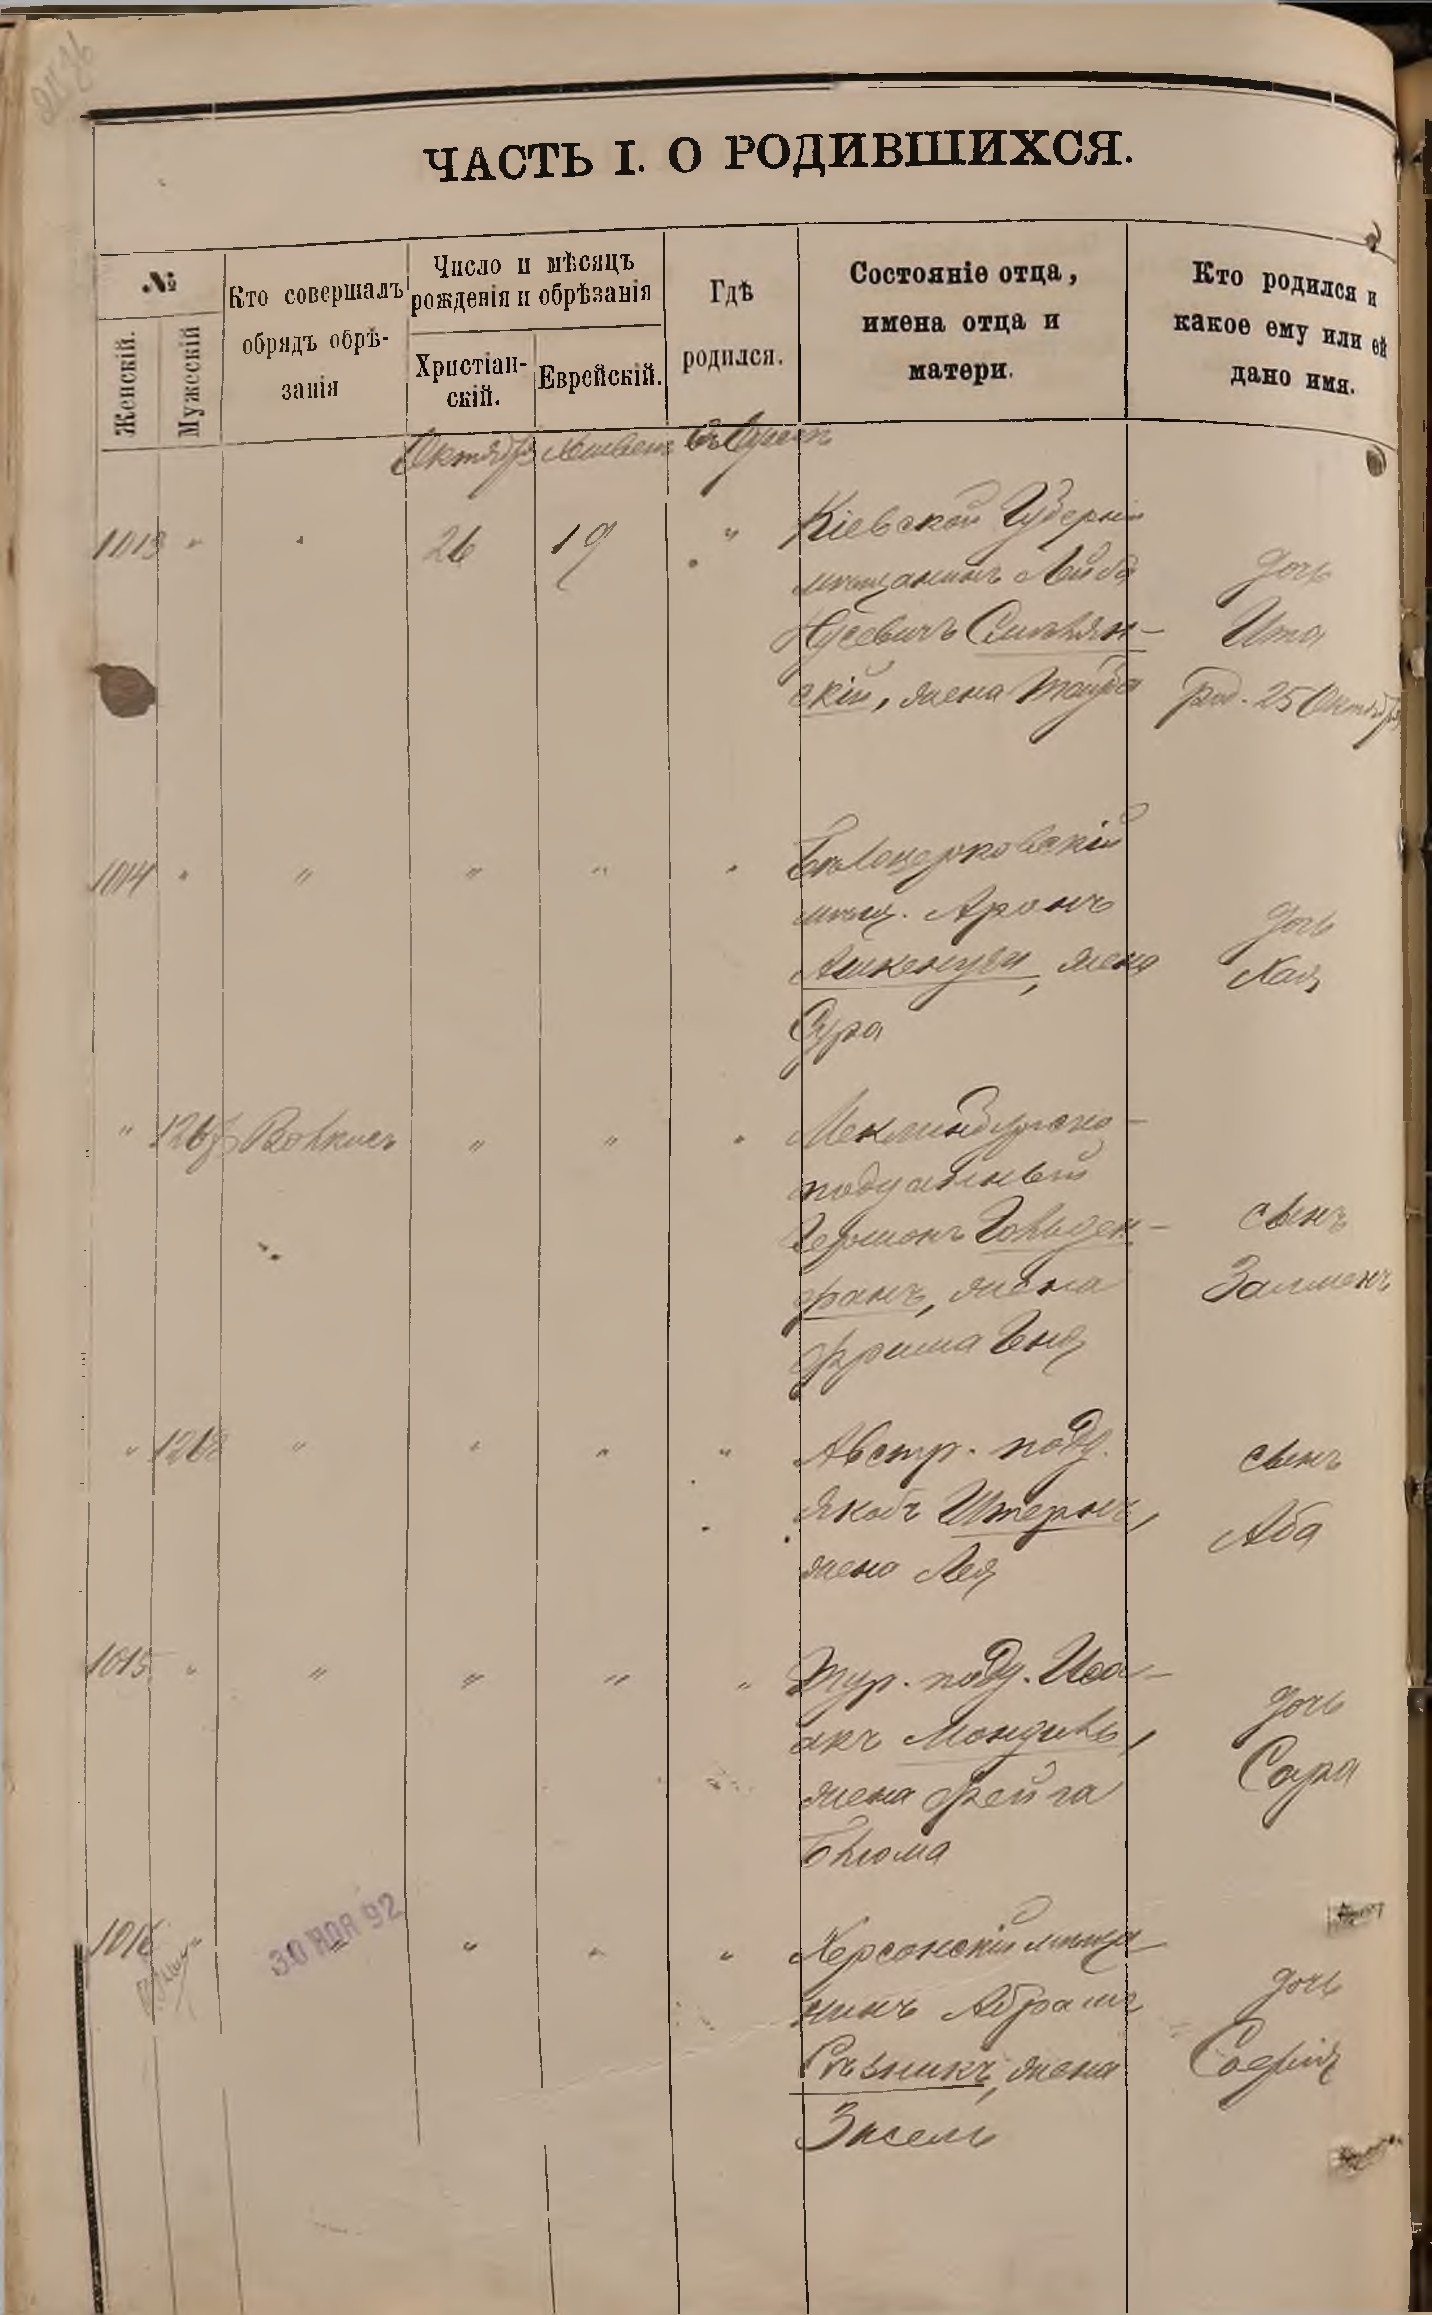 ЧАСТЬ I. О РОДИВШИХСЯ.
№
Женскій.
Мужескій
Кто совершалъ
обрядъ обрѣ-
занія
Число и мѣсяцъ
рожденія и обрѣзанія
Христіан-
скій.
Еврейскій.
Гдѣ
родился.
Состояніе отца,
имена отца и
матери.
Кто родился и
какое ему или ей
дано имя.
Октября Хешвенъ въ Одессѣ
1013 " " 26 19 "
Кіевской Губерніи
мѣщанинъ Лейба
Нусевичъ Смѣлян-
скій, жена Тауба
дочь
Ита
род. 25 Октября
1014 " " " " "
Бѣлоцерковскій
мѣщ. Аронъ
Ашкенузи, жена
Сура
дочь
Хая
" 1267 Волкисъ " " "
Мекленбургско-
подданный
Гершонъ Гольден-
франъ, жена
сынъ
Залменъ
" 1268 " " " "
Австр. подд.
Якобъ Штернъ,
жена Лея
сынъ
Аба
1015 " " " " "
Тур. подд. Иса-
акъ Мондиль,
жена Фейга
Блюма
дочь
Сара
1016 " " " "
30 НОЯ 92
Херсонскій мѣща-
нинъ Абрамъ
Рѣзникъ, жена
Зисель
дочь
Софія